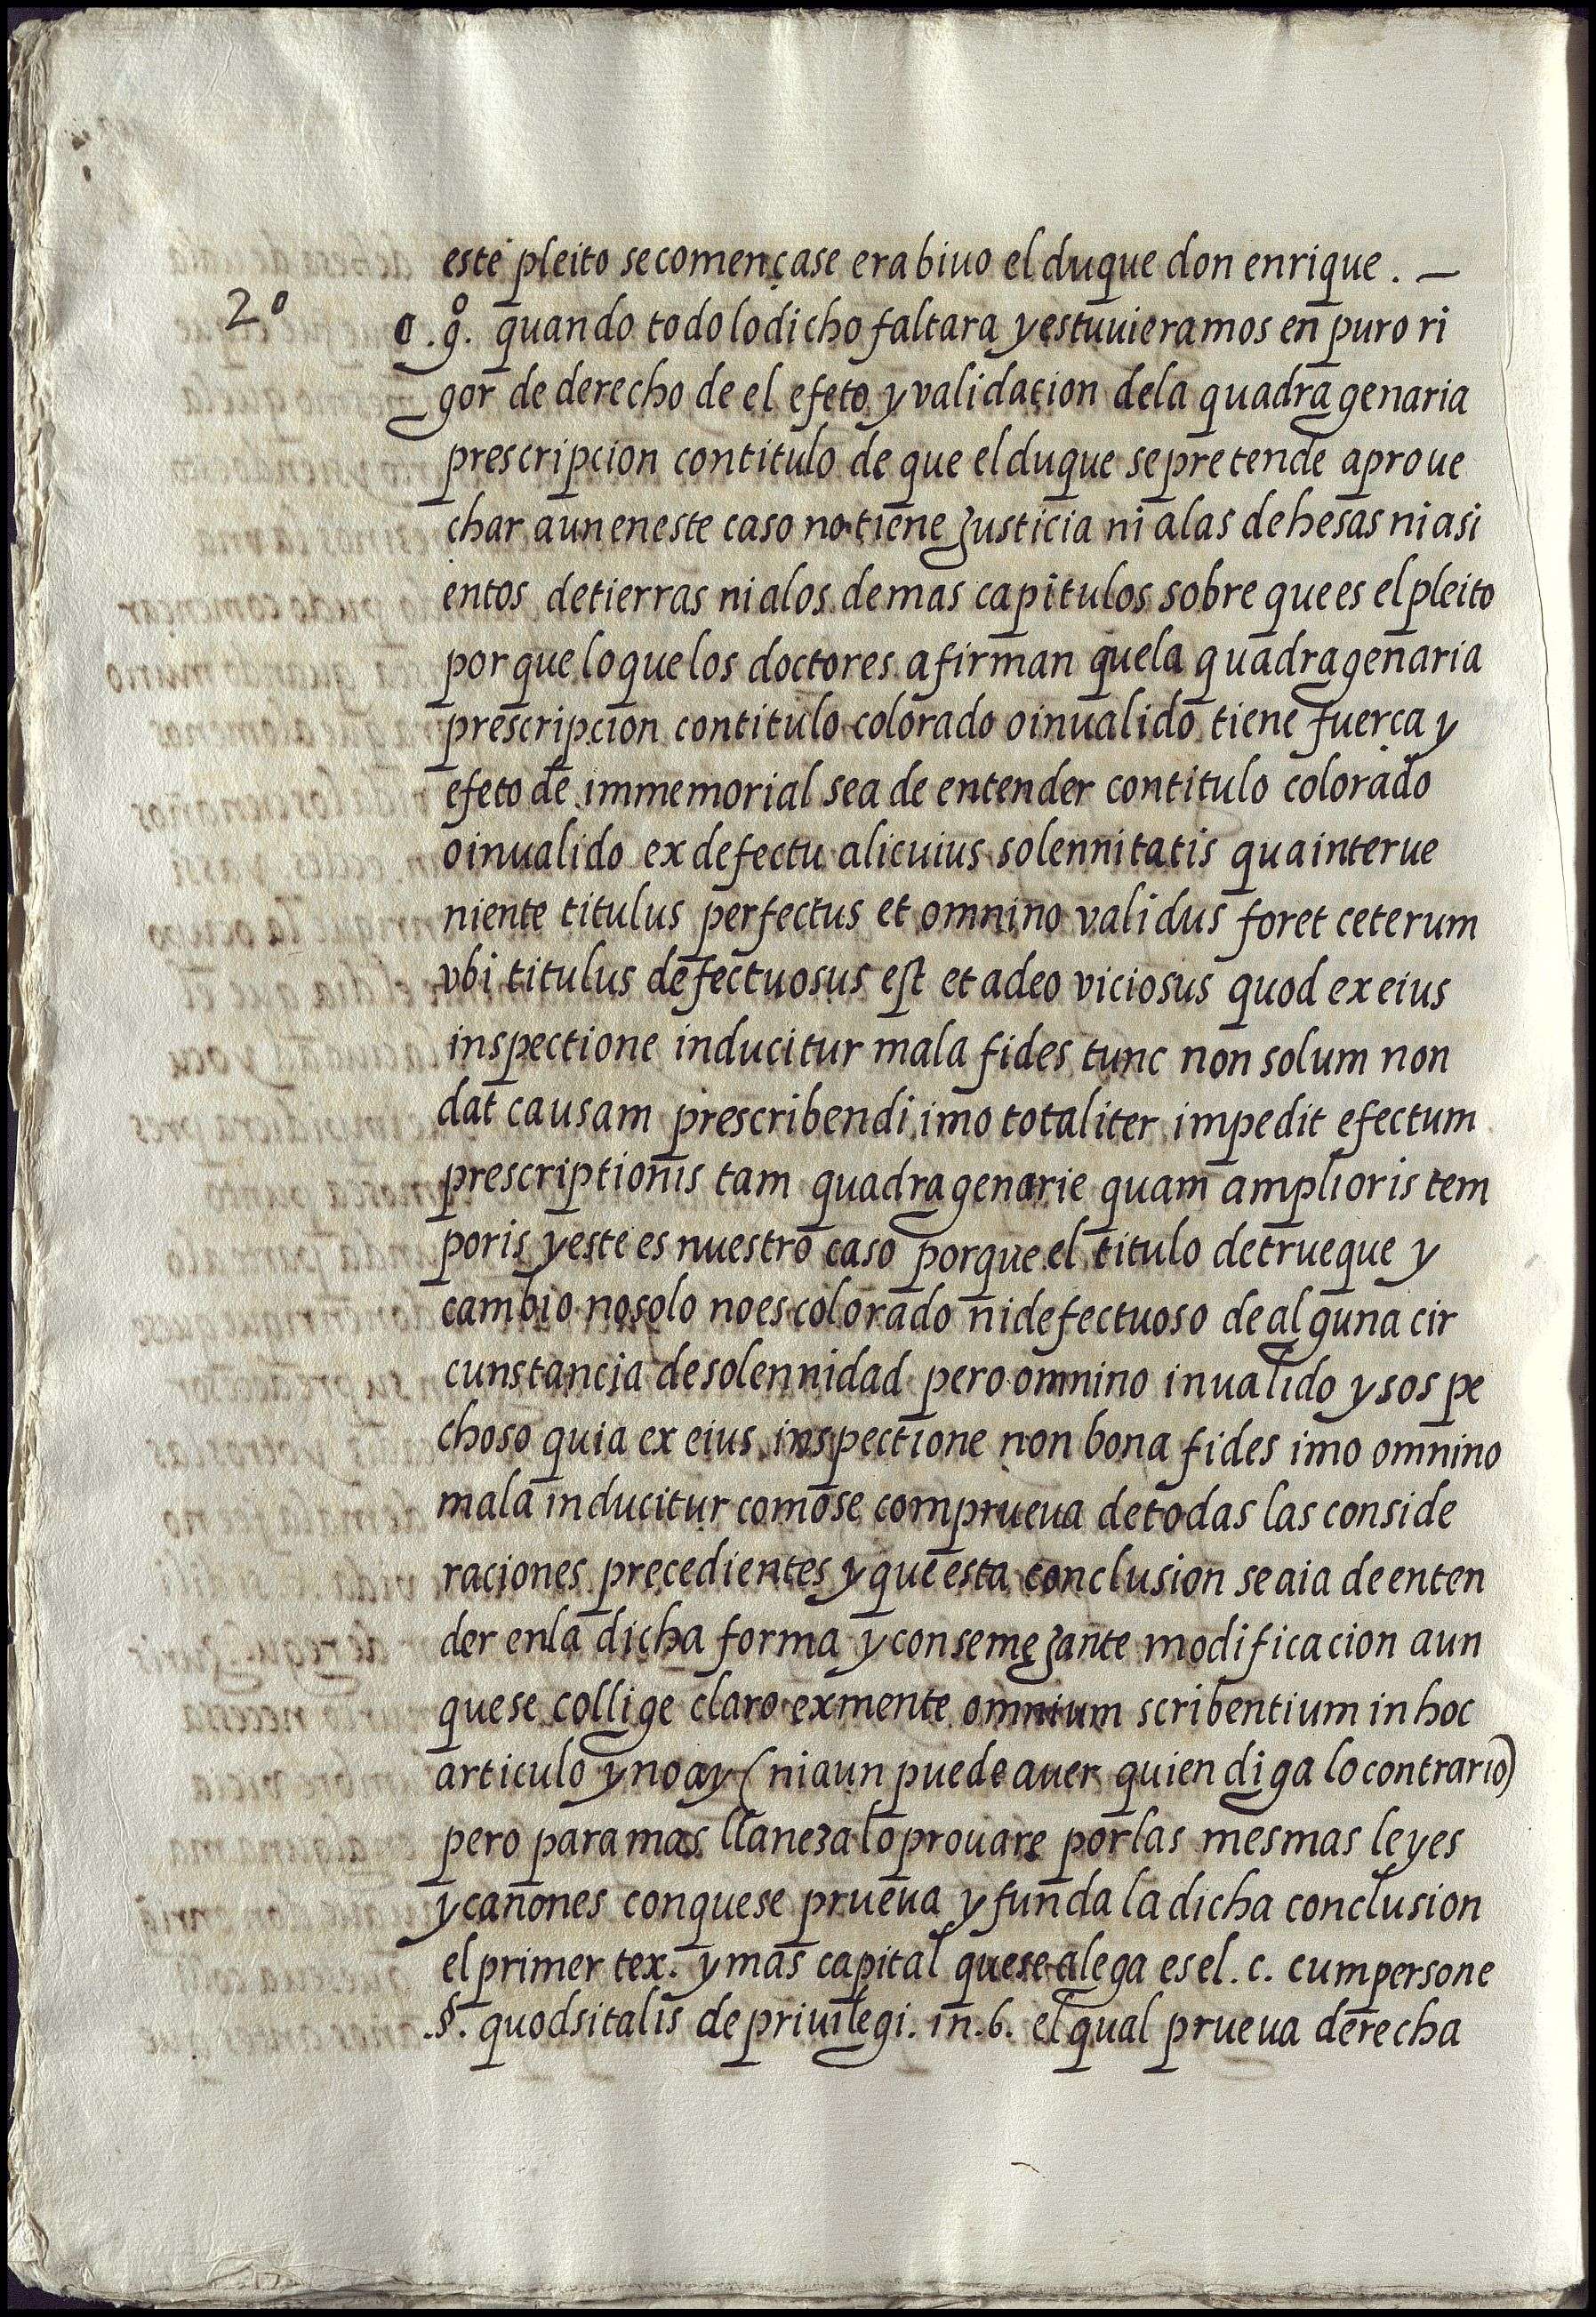 este pleito se començase era biuo el duque don enrique . —
2º
¶ .9º. quando todo lo dicho faltara y estuuieramos en puro ri
gor de derecho de el efeto y validacion dela quadragenaria
prescripcion con titulo de que el duque se pretende aproue
char aun en este caso no tiene justicia ni a las dehesas ni asi
entos de tierras ni alos demas capitulos sobre que es el pleito
por que lo que los doctores afirman que la quadragenaria
prescripcion con titulo colorado o inualido tiene fuerça y
efeto de immemorial se a de entender con titulo colorado
o inualido ex defectu alicuius solennitatis qua interue
niente titulus perfectus et omnino validus foret ceterum
vbi titulus defectuosus est et adeo viciosus quod ex eius
inspectione inducitur mala fides tunc non solum non
dat causam prescribendi imo totaliter impedit efectum
prescriptionis tam quadragenarie quam amplioris tem
poris y este es nuestro caso porque el titulo de trueque y
cambio no solo no es colorado ni defectuoso de alguna cir
cunstancia de solennidad pero omnino inualido y sospe
choso quia ex eius inspectione non bona fides imo omnino
mala inducitur como se comprueua de todas las conside
raciones precedientes y que esta conclusion se aia de enten
der en la dicha forma y con semejante modificacion aun
que se collige claro ex mente omnium scribentium in hoc
articulo y no ay (ni aun puede auer quien diga lo contrario)
pero para mas llaneza lo prouare por las mesmas leyes
y canones con que se prueua y funda la dicha conclusion
el primer tex. y mas capital que se alega es el .c. cum persone
.§. quod si talis de priuilegi. in .6. el qual prueua derecha